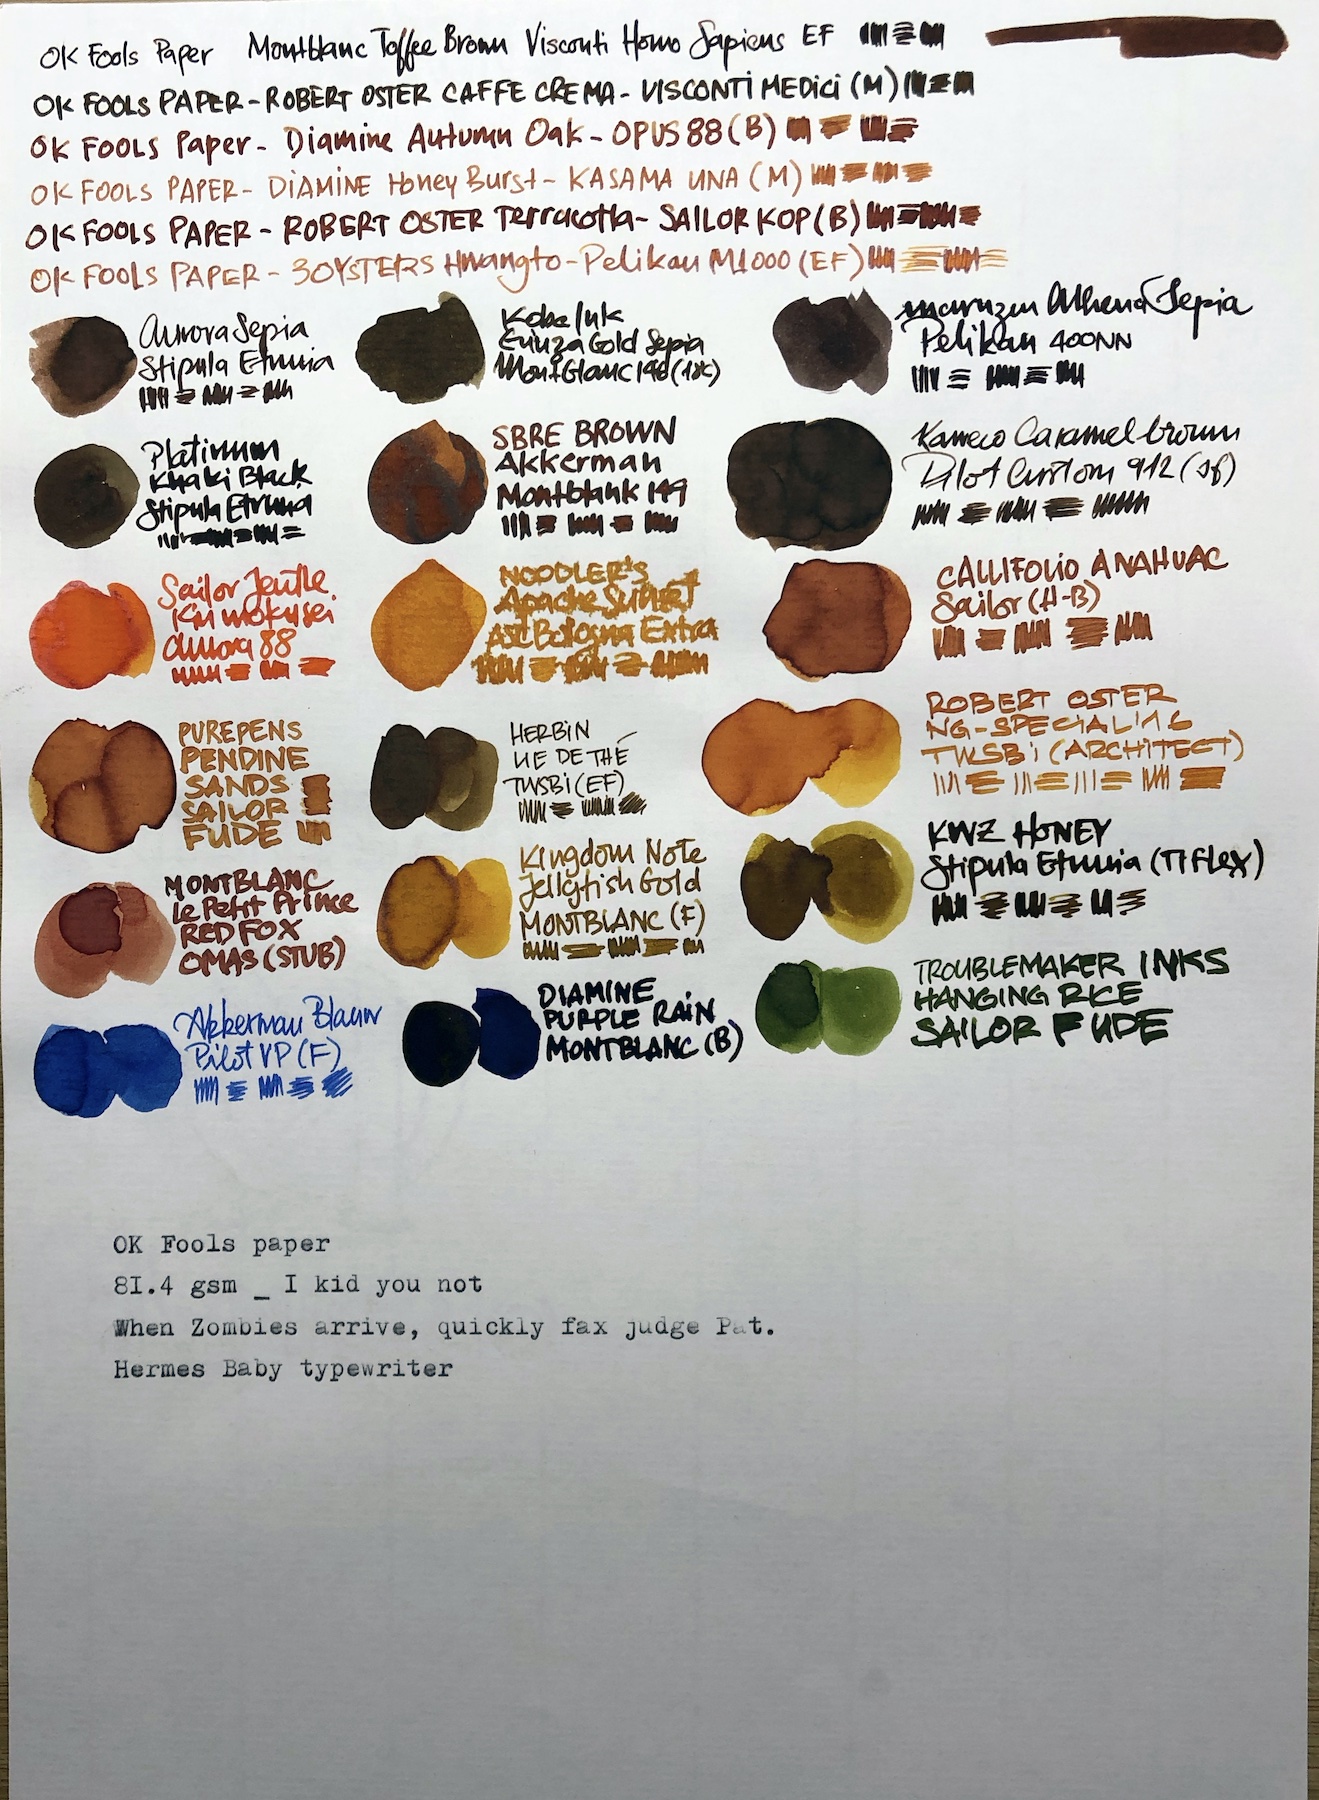 OK Fools Paper Montblanc Toffee Brown Visconti Homo Sapiens EF
OK FOOLS PAPER - ROBERT OSTER CAFFE CREMA - VISCONTI MEDICI (M)
OK FOOLS Paper - Diamine Autumn Oak - OPUS 88 (B)
OK FOOLS PAPER - DIAMINE Honey Burst - KASAMA UNA (M)
OK FOOLS PAPER - ROBERT OSTER Terracotta - SAILOR KOP (B)
OK FOOLS PAPER - 3OYSTERS Hwangto - Pelikan M1000 (EF)
Aurora Sepia
Stipula Etruria
Kobe Ink
Ginza Gold Sepia
MontBlanc 146 (18c)
maruzen Athena Sepia
Pelikan 400NN
Platinum
Khaki Black
Stipula Etruria
SBRE BROWN
Akkerman
Montblank 149
Kaweco Caramel brown
Pilot Custom 912 (sf)
Sailor Jentle
Kinmokusei
Aurora 88
NOODLER'S
Apache Sunset
ASC Bologna Extra
CALLIFOLIO ANAHUAC
Sailor (H-B)
PUREPENS
PENDINE
SANDS
SAILOR
FUDE
HERBIN
LIE DE THÉ
TWSBi (EF)
ROBERT OSTER
NG-SPECIAL '16
TWSBi (ARCHITECT)
MONTBLANC
Le Petit Prince
RED FOX
OMAS (STUB)
Kingdom Note
Jellyfish Gold
MONTBLANC (F)
KWZ HONEY
Stipula Etruria (TI FLEX)
Akkerman Blauw
Pilot VP (F)
DIAMINE
PURPLE RAIN
MONTBLANC (B)
TROUBLEMAKER INKS
HANGING RICE
SAILOR FUDE
OK Fools paper
8I.4 gsm _ I kid you not
When Zombies arrive, quickly fax judge Pat.
Hermes Baby typewriter